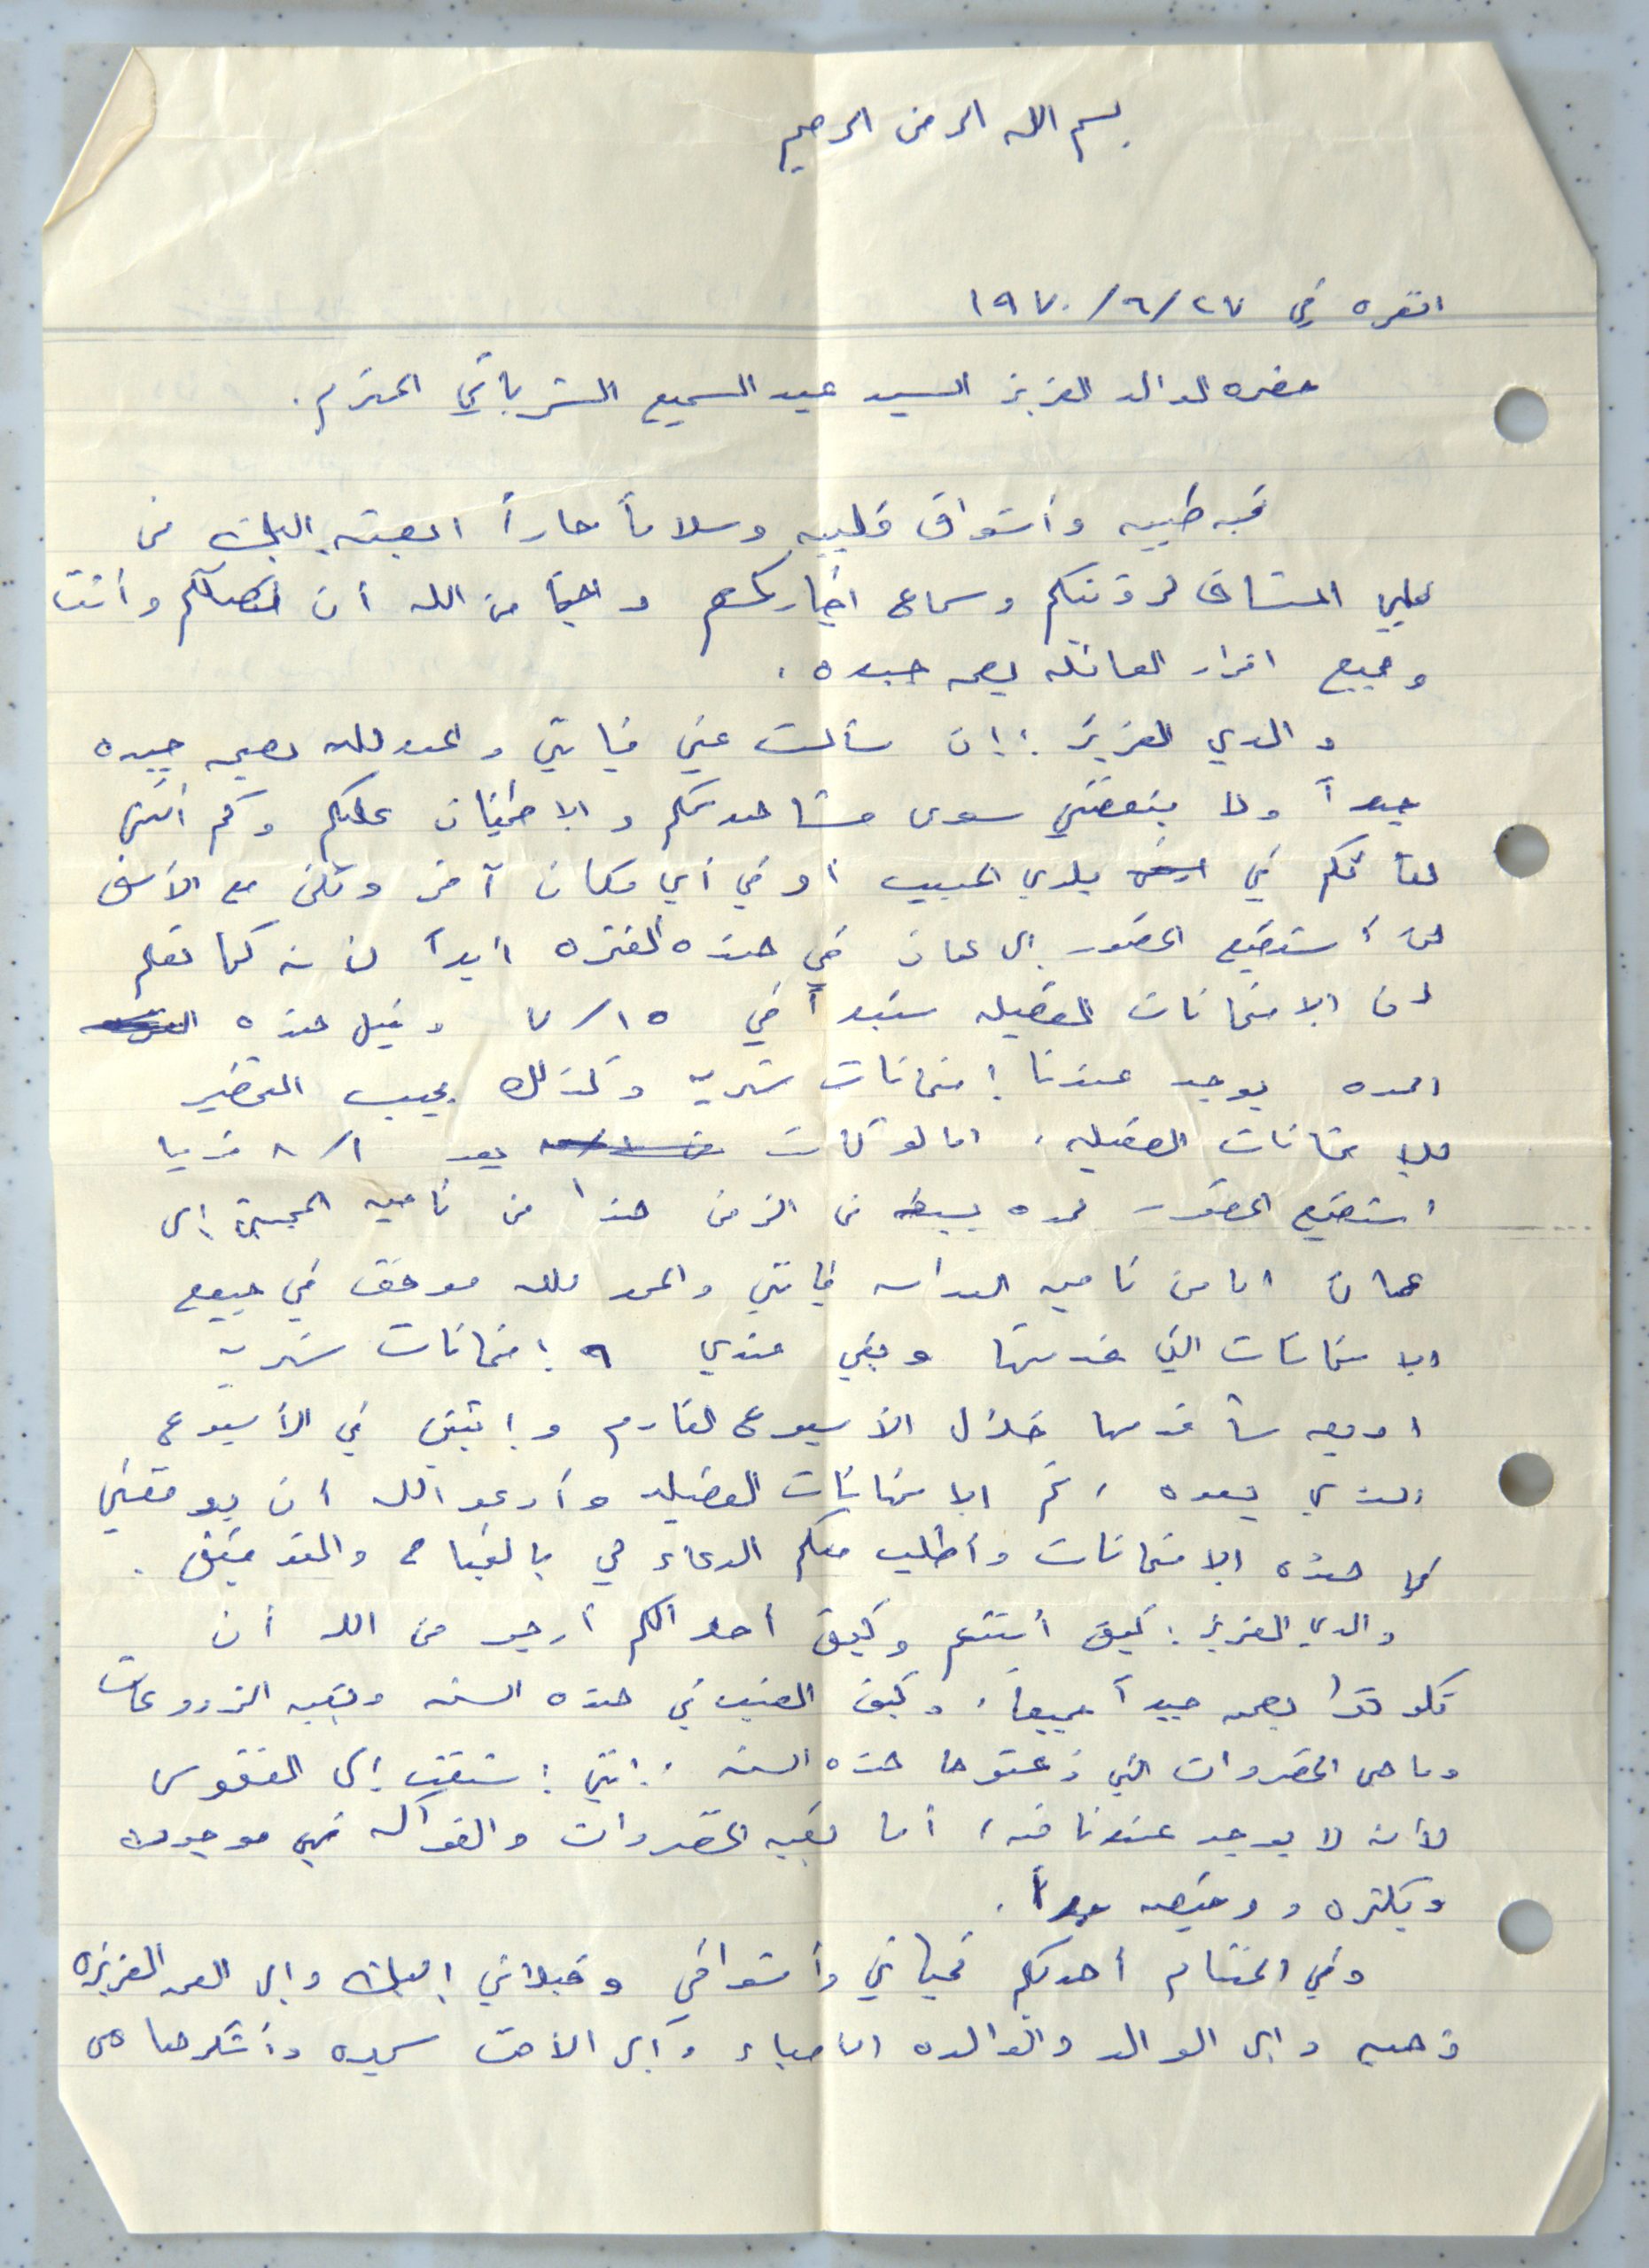 بسم الله الرحمن الرحيم
انقره في ٢٧/٦/١٩٧٠
حضرة الوالد العزيز السيد عبد السميع الشرباتي المحترم.
تحيه طيبه وأشواق قلبيه وسلاماً حاراً ابعثه إليك من
قلبي المشتاق لرؤيتكم وسماع اخباركم من الله أن تصلكم وأنت
وجميع افراد العائله بصحه جيده.
والدي العزيز: إن سألت عني فإنني والحمد لله بصحه جيده
جداً ولا ينقصني سوى مشاهدتكم والاطمئنان عليكم وكم اتمنى
لقائكم في بلدي الحبيب أو في أي مكان آخر ولكن مع الأسف
لن أستطيع الحضور إلى عمان في هذه الفتره ابداً لأنه كما تعلم
أن الامتحانات الفصليه ستبدأ في ١٥/٧ وقبل هذه
المده يوجد عندنا إمتحانات شهريه وكذلك يجب التحضير
للامتحانات الفصليه، اما لو كانت بعد ١/٨ فربما
استطيع الحضور لمده بسيطه من الزمن هذا من ناحيه المجيئ إلى
عمان اما من ناحيه الدراسه فإنني والحمد لله موفق في جميع
الامتحانات التي قدمتها وبقي عندي ٩ إمتحانات شهريه
اربعه سأقدمها خلال الأسبوع القادم وإثنين في الأسبوع
الذي بعده، ثم الامتحانات الفصليه وأدعو الله أن يوفقني
في هذه الامتحانات وأطلب منكم الدعاء لي بالنجاح والتوفيق.
والدي العزيز: كيف أنتم وكيف أحوالكم أرجو من الله أن
تكونوا بصحه جيداً جميعاً، وكيف العنب في هذه السنه وبقيه المزروعات
وما هي الخضروات التي زرعتوها هذه السنه، إنني إشتقت إلى الفقوس
لأنه لا يوجد عندنا منه، أما بقيه الخضروات والفواكه فهي موجوده
وبكثره ورخيصه جداً.
وفي الختام أهديكم تحياتي وأشواقي وقبلاتي إليك وإلى العمه العزيزه
وإلى الوالد والوالده الأحباء وإلى الأخت سميره وأشكرها على